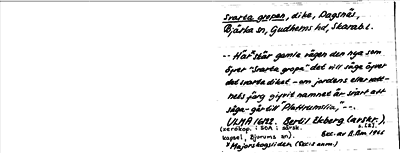 Svarta gropen, dike, Dagsnäs,
Bjärka sn, Gudhems hd, Skarabl.
-- Här× skär gamla vägen den nya som
över "Svarta gropa" det vill säga över
det svarta diket - om jordens eller vatt-
nets färg givit namnet är svårt att
säga - går till "Plattrumslia", --.
ULMA 1642. Bertil Ekberg (avskr.),
(xeroxkop. i SOA i särsk. s. [2].
kapsel, Bjurums sn). Exc. av B. Bm. 1965
× Majorskogsliden (Exc:s anm.)